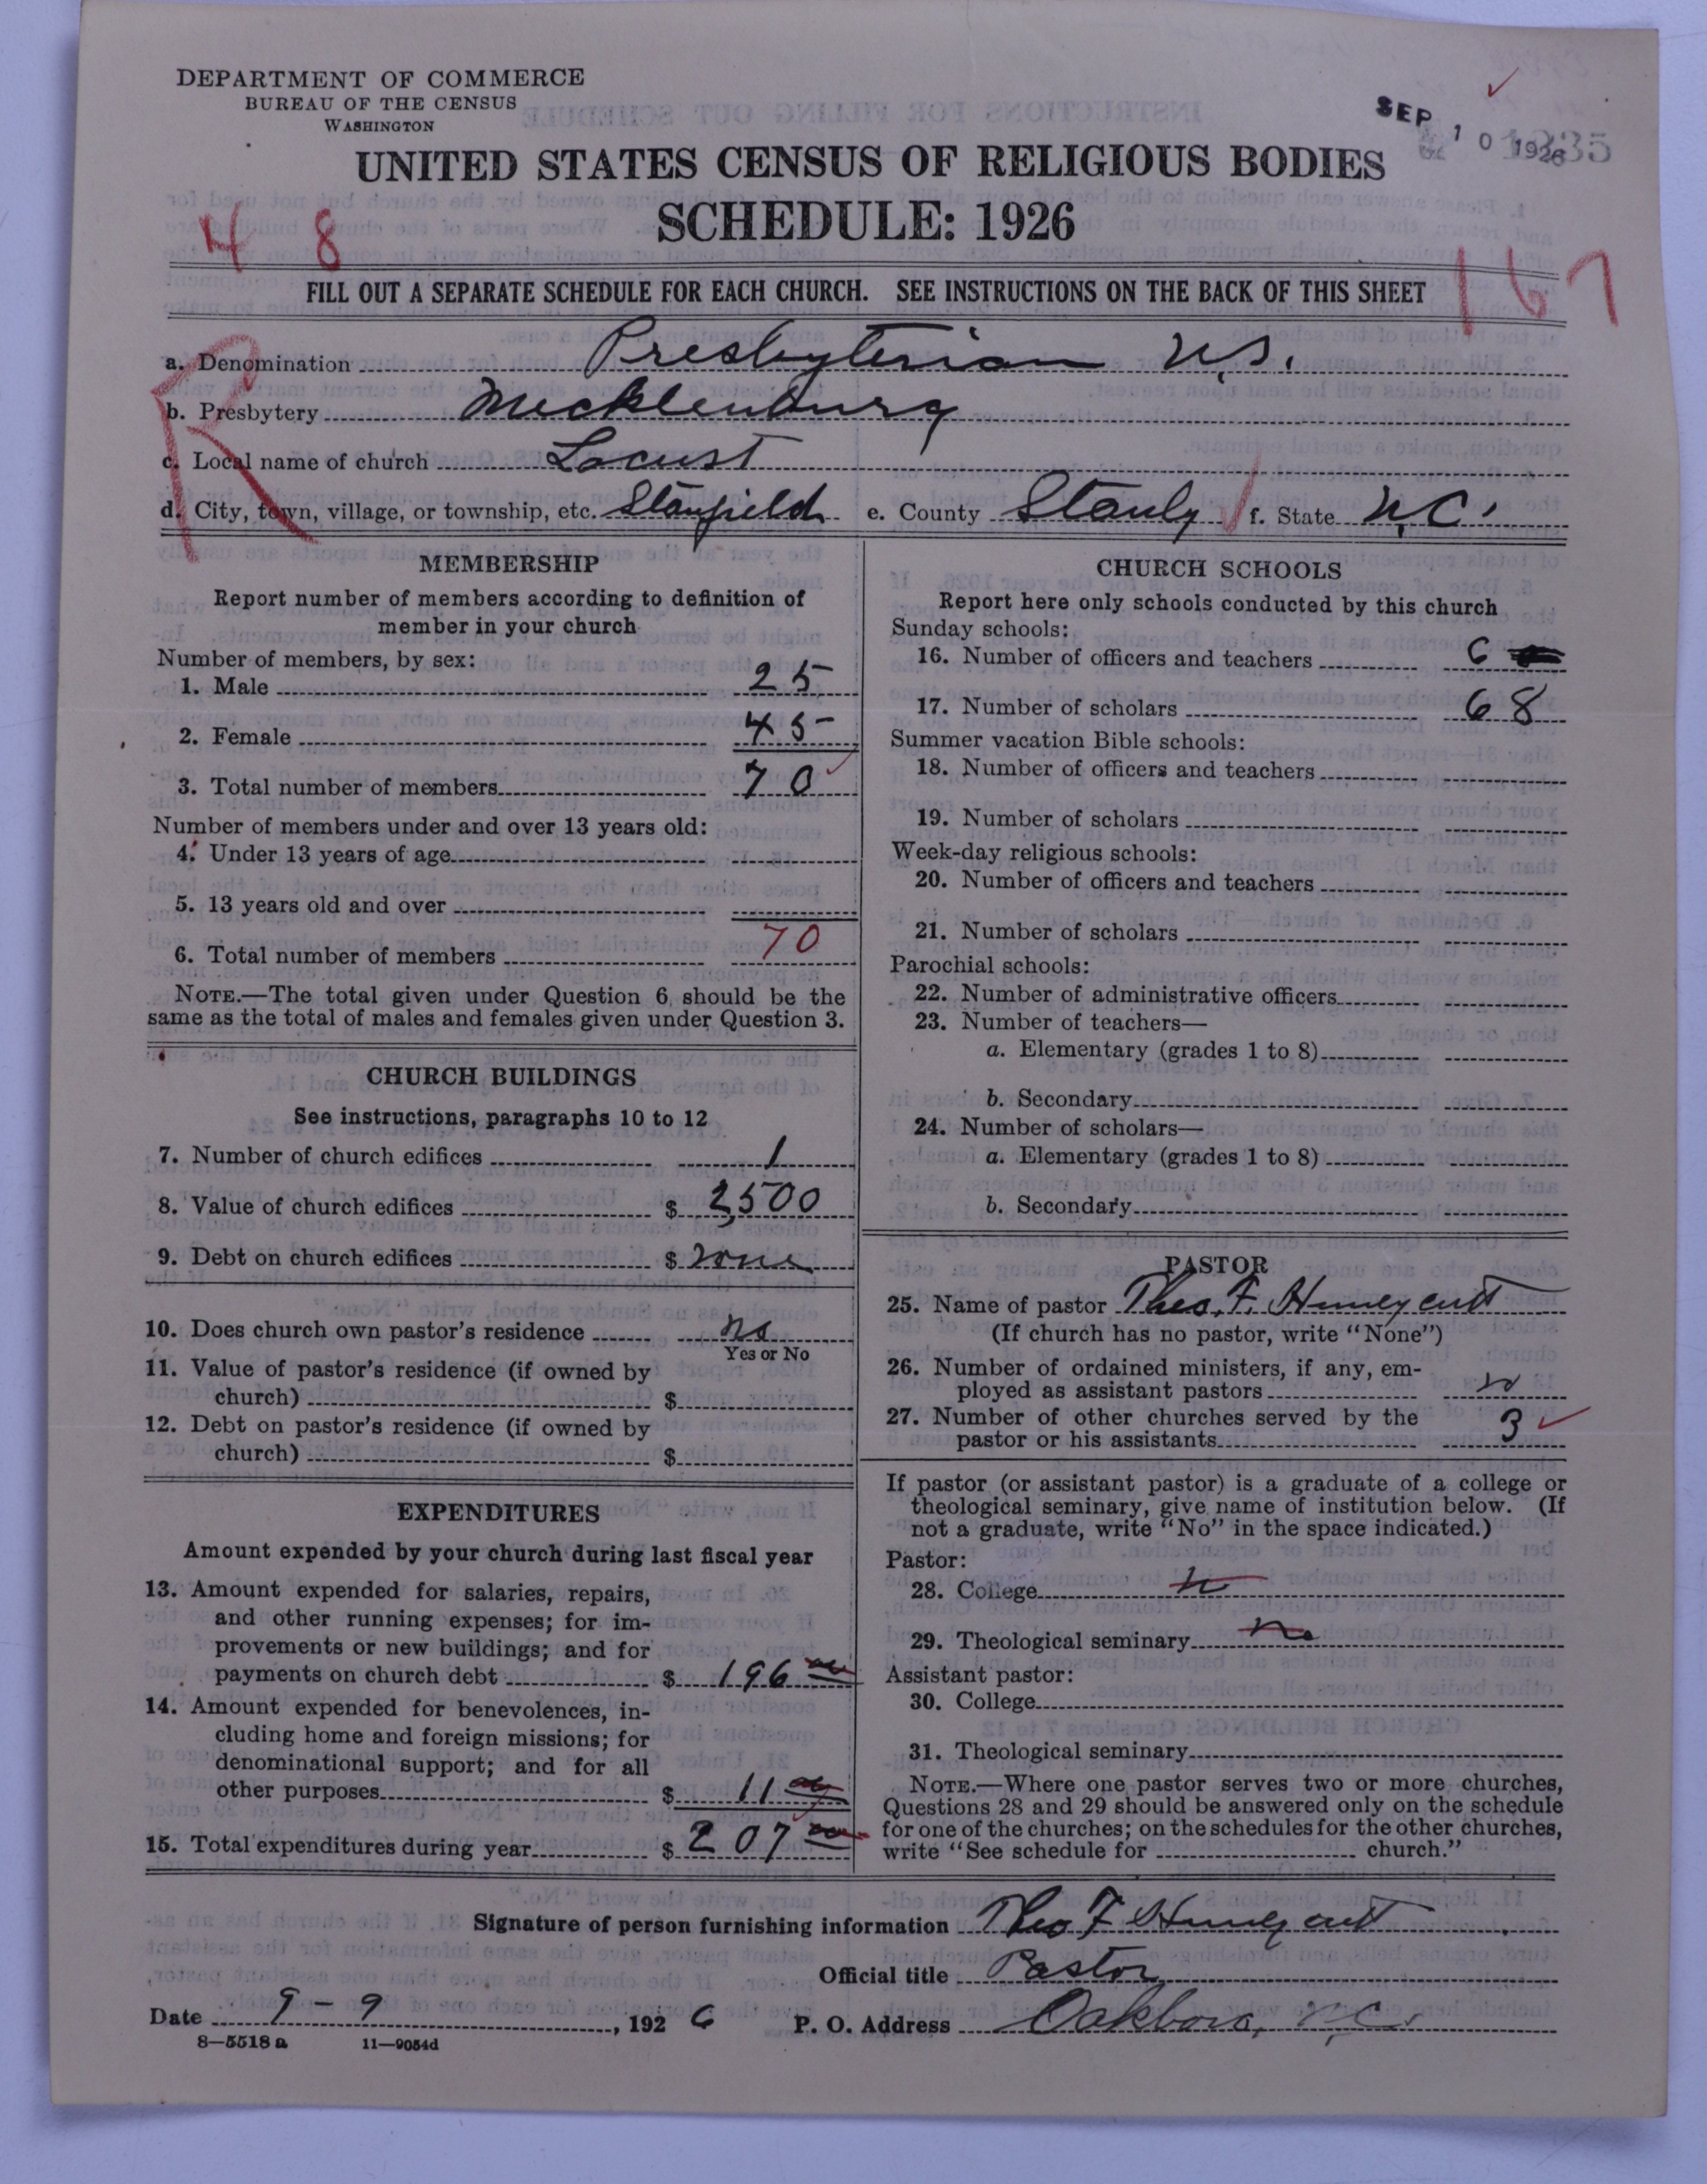 DEPARTMENT OF COMMERCE
BUREAU OF THE CENSUS
WASHINGTON
SEP 10 1926
UNITED STATES CENSUS OF RELIGIOUS BODIES
SCHEDULE: 1926
4 8
167
FILL OUT A SEPARATE SCHEDULE FOR EACH CHURCH. SEE INSTRUCTIONS ON THE BACK OF THIS SHEET
a. Denomination Presbyterian U.S.
b. Presbytery Mecklenburg
c. Local name of church Locust
d. City, town, village, or township, etc. Stanfield e. County Stanly f. State N.C.
MEMBERSHIP
Report number of members according to definition of
member in your church
Number of members, by sex:
1. Male 25
2. Female 45
3. Total number of members 70
Number of members under and over 13 years old:
4. Under 13 years of age
5. 13 years old and over
6. Total number of members 70
NOTE.—The total given under Question 6 should be the
same as the total of males and females given under Question 3.
CHURCH BUILDINGS
See instructions, paragraphs 10 to 12
7. Number of church edifices 1
8. Value of church edifices $ 2,500
9. Debt on church edifices $ none
10. Does church own pastor's residence no
Yes or No
11. Value of pastor's residence (if owned by
church) $
12. Debt on pastor's residence (if owned by
church) $
EXPENDITURES
Amount expended by your church during last fiscal year
13. Amount expended for salaries, repairs,
and other running expenses; for im-
provements or new buildings; and for
payments on church debt $ 196
14. Amount expended for benevolences, in-
cluding home and foreign missions; for
denominational support; and for all
other purposes $ 11
15. Total expenditures during year $ 207
CHURCH SCHOOLS
Report here only schools conducted by this church
Sunday schools:
16. Number of officers and teachers 6
17. Number of scholars 68
Summer vacation Bible schools:
18. Number of officers and teachers
19. Number of scholars
Week-day religious schools:
20. Number of officers and teachers
21. Number of scholars
Parochial schools:
22. Number of administrative officers
23. Number of teachers—
a. Elementary (grades 1 to 8)
b. Secondary
24. Number of scholars—
a. Elementary (grades 1 to 8)
b. Secondary
PASTOR
25. Name of pastor Theo. F. Huneycutt
(If church has no pastor, write "None")
26. Number of ordained ministers, if any, em-
ployed as assistant pastors no
27. Number of other churches served by the
pastor or his assistants 3
If pastor (or assistant pastor) is a graduate of a college or
theological seminary, give name of institution below. (If
not a graduate, write "No" in the space indicated.)
Pastor:
28. College no
29. Theological seminary no
Assistant pastor:
30. College
31. Theological seminary
NOTE.—Where one pastor serves two or more churches,
Questions 28 and 29 should be answered only on the schedule
for one of the churches; on the schedules for the other churches,
write "See schedule for church."
Signature of person furnishing information Theo F Huneycutt
Official title Pastor
Date 9-9, 1926 P. O. Address Oakboro, N.C.
8—5518 a 11—9054d